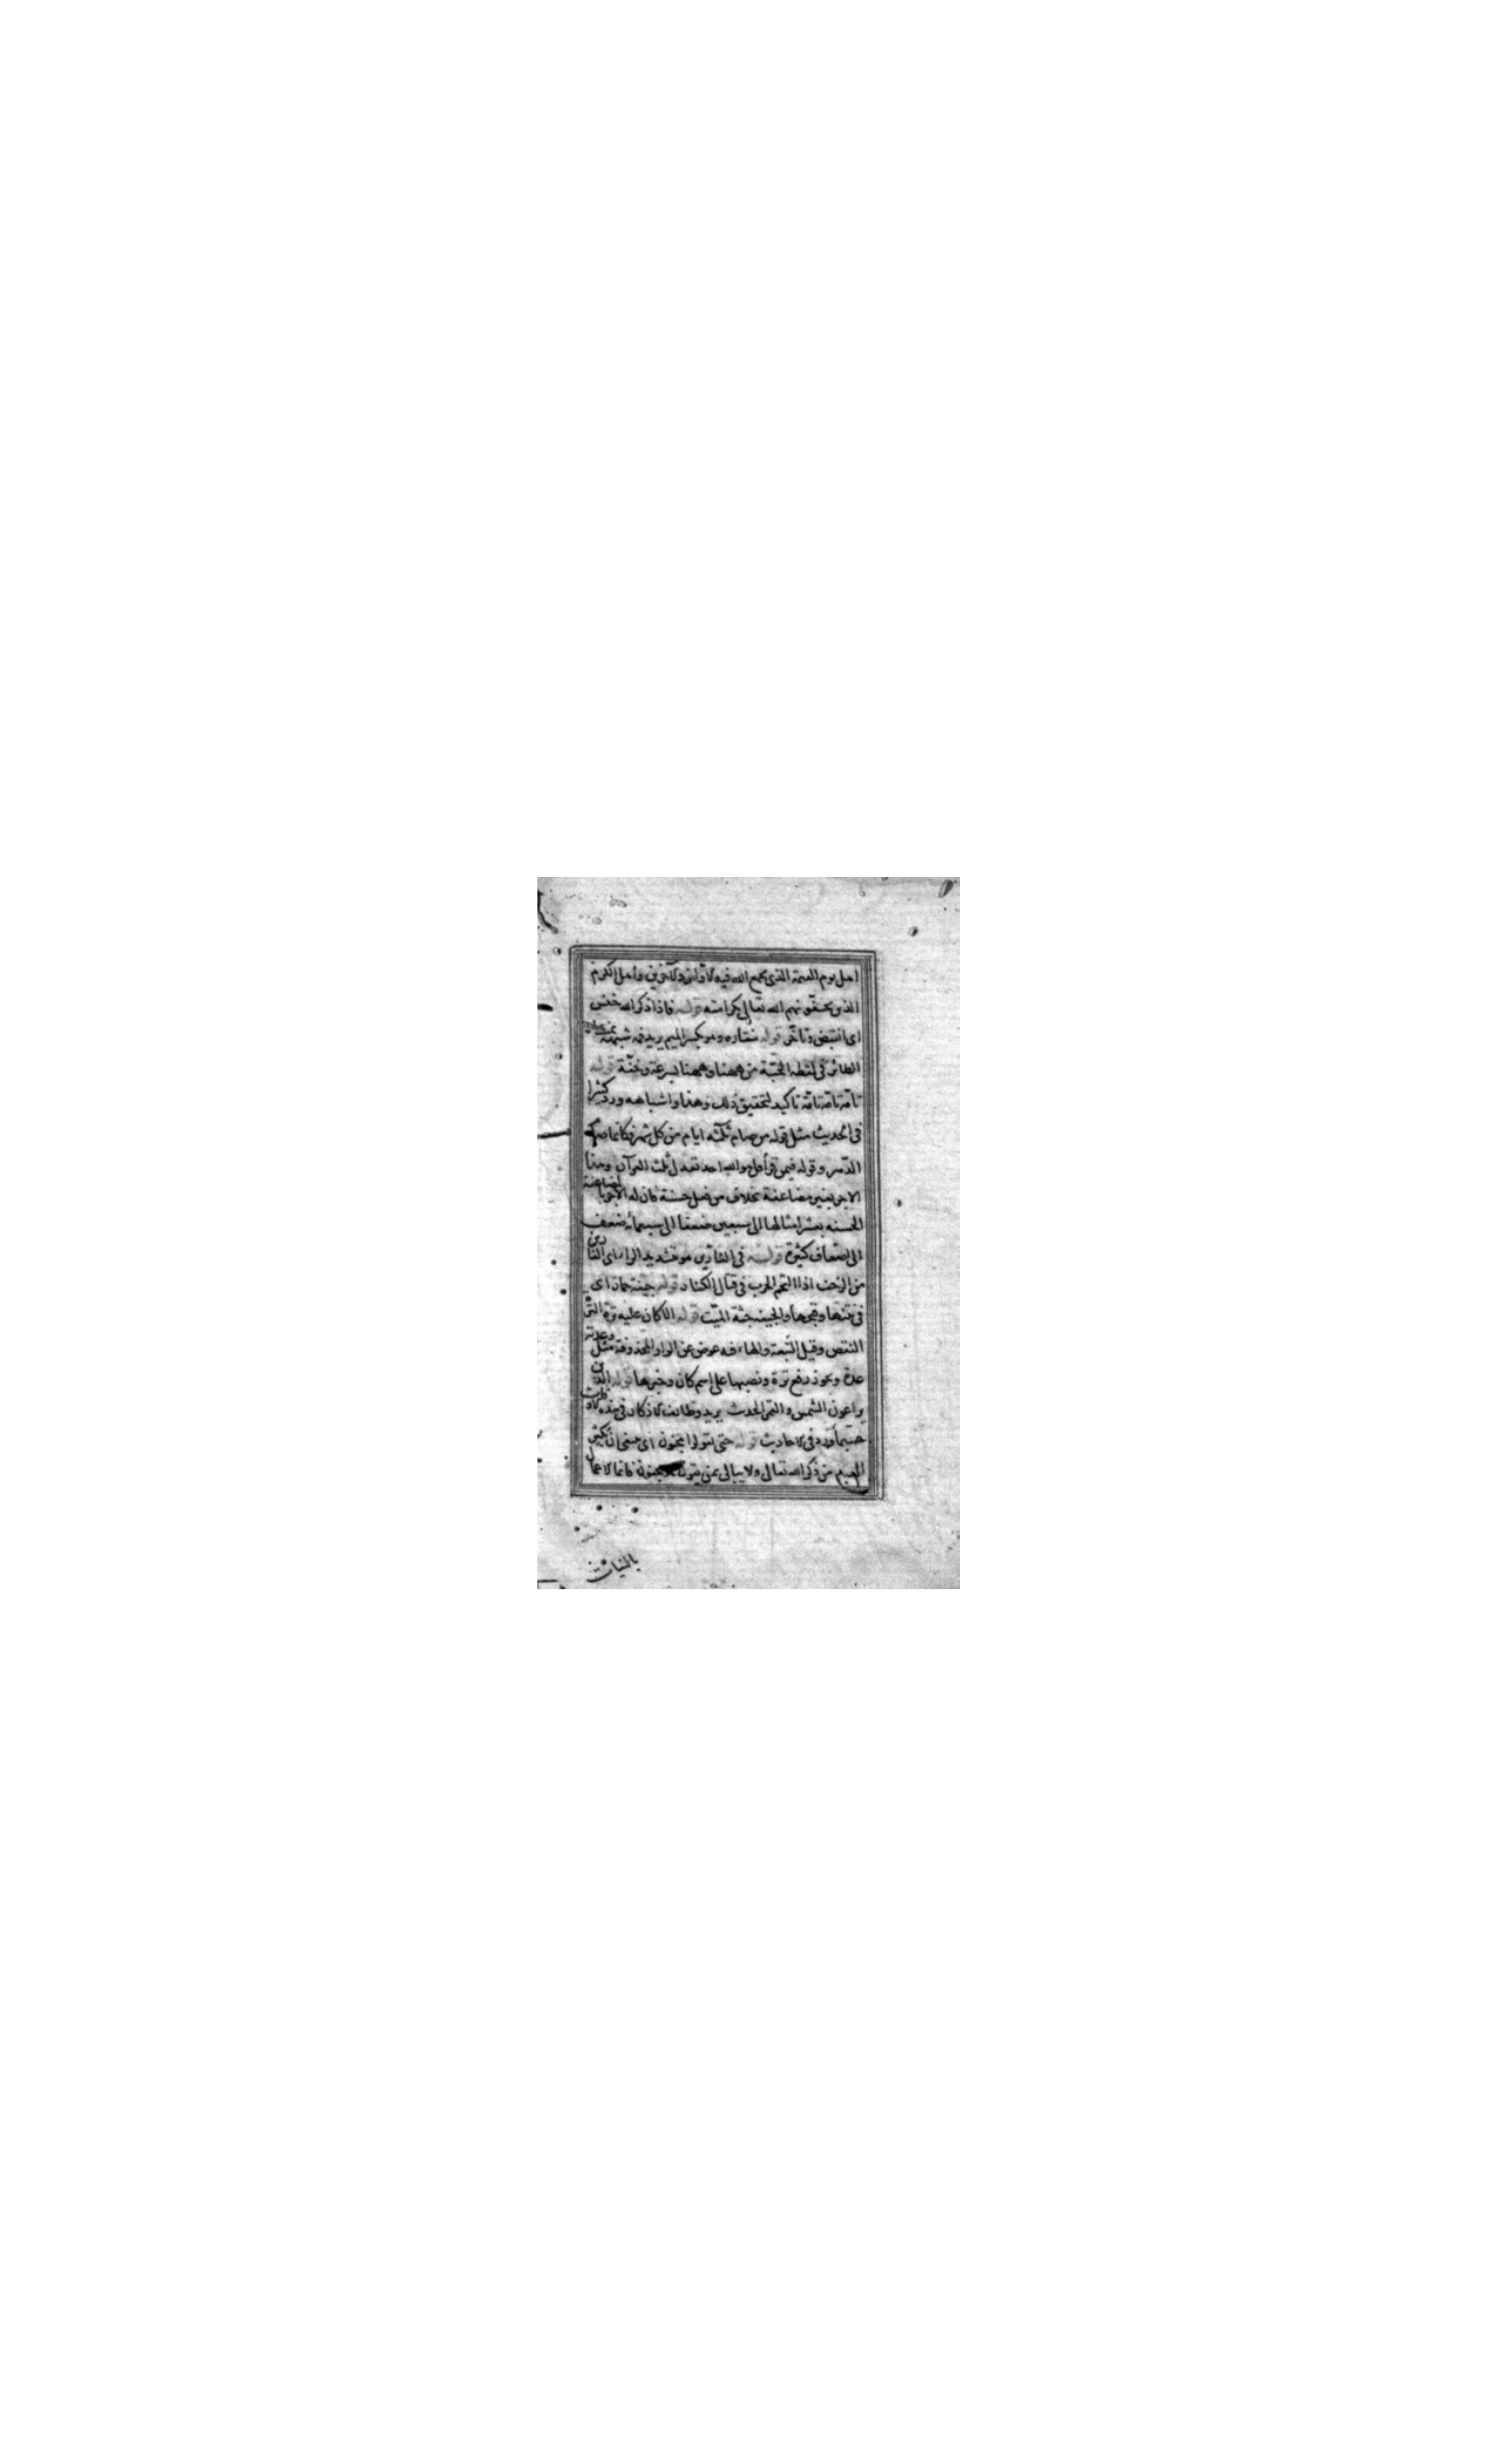 اهل يوم القيمة الذى يجمع الله فيه الاولين والآخرين واهل الكرم
الذين يحفونهم الله تعالى بكرامته قوله فاذا ذكر الله خنس
اى انقبض وتأخر قوله منقاره وهو بكسر الميم يريد فمه شبهه
الطائر فى لقطه الحبة من ههنا وههنا بسرعة وخفة قوله
تامة تامة تامة تاكيد لتحقيق ذلك وهذا واشباهه ورد كثيرا
فى الحديث مثل قوله من صام ثلثة ايام من كل شهر فكانما صام
الدهر وقوله فيمن قرأ قل هو الله احد تعدل ثلث القرآن وهذا
الاجر بغير مضاعفة بخلاف من فعل حسنة كان له الاجر بالمضاعفة
الحسنه بعشر امثالها الى سبعين ضعفا الى سبعمائه ضعف
الى اضعاف كثيرة قوله فى الفارين هو بتشديد الراء اى الفارين
من الزحف اذا التحم الحرب فى قتال الكفار قوله جيفة حمار اى
فى نتنها وقبحها والجيفه جثة الميت قوله الا كان عليه ترة الترة
النقص وقيل التبعة والهاء فيه عوض عن الواو المحذوفة مثل وعدته
عدة ويجوز رفع ترة ونصبها على اسم كان وخبرها قوله الذين
يراعون الشمس والقمر الحديث يريد وظائف الاذكار فى هذه الاوقات
حسبما ورد فى الاحاديث قوله حتى يقولوا مجنون اى ينبغى ان يكثر
العبد من ذكر الله تعالى ولا يبالى بمن يقول مجنون فانما الاعمال
بالنيات